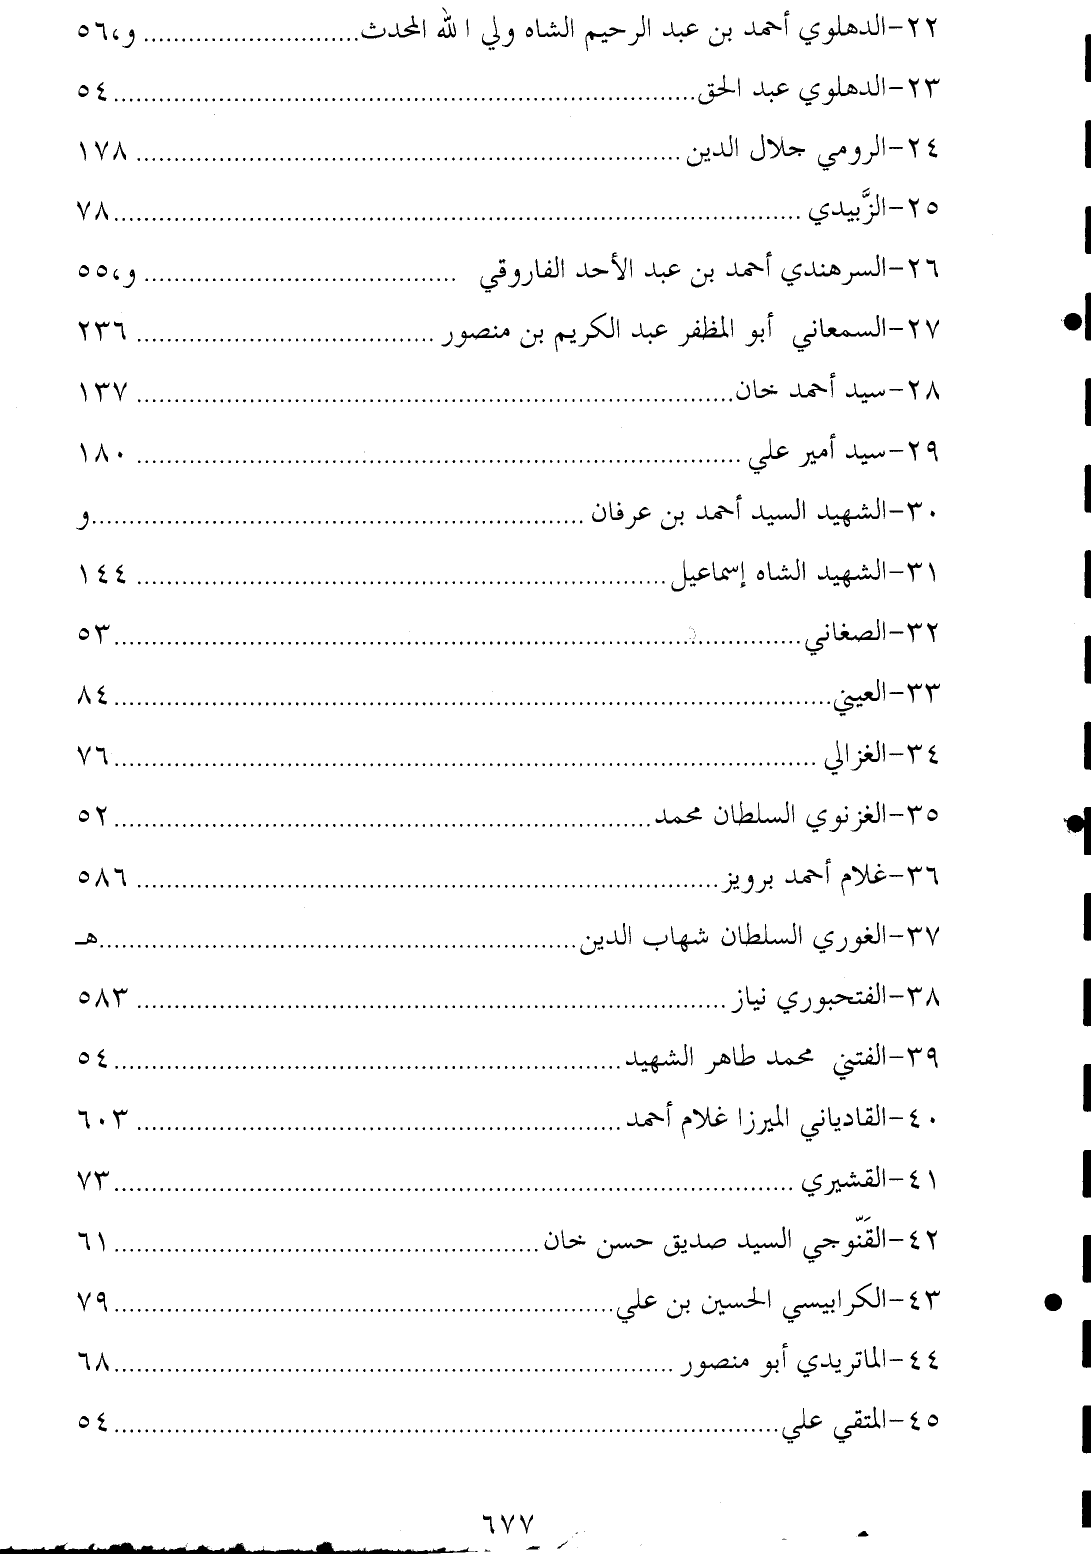 ٢٢-الدهلوي أحمد بن عبد الرحيم الشاه ولي الله المحدث............................ و،٥٦
٢٣-الدهلوي عبد الحق............................ ٥٤
٢٤-الرومي جلال الدين ............................ ١٧٨
٢٥-الزَّبيدي ............................ ٧٨
٢٦-السرهندي أحمد بن عبد الأحد الفاروقي ............................ و،٥٥
٢٧-السمعاني أبو المظفر عبد الكريم بن منصور ............................ ٢٣٦
٢٨-سيد أحمد خان............................ ١٣٧
٢٩-سيد أمير علي ............................ ١٨٠
٣٠-الشهيد السيد أحمد بن عرفان ............................و
٣١-الشهيد الشاه إسماعيل............................ ١٤٤
٣٢-الصغاني............................ ٥٣
٣٣-العيني............................ ٨٤
٣٤-الغزالي ............................ ٧٦
٣٥-الغزنوي السلطان محمد............................ ٥٢
٣٦-غلام أحمد برويز............................ ٥٨٦
٣٧-الغوري السلطان شهاب الدين............................هـ
٣٨-الفتحبوري نياز ............................ ٥٨٣
٣٩-الفتني محمد طاهر الشهيد............................ ٥٤
٤٠-القادياني الميرزا غلام أحمد............................ ٦٠٣
٤١-القشيري ............................ ٧٣
٤٢-القَنّوجي السيد صديق حسن خان............................ ٦١
٤٣-الكرابيسي الحسين بن علي............................ ٧٩
٤٤-الماتريدي أبو منصور ............................ ٦٨
٤٥-المتقي علي............................ ٥٤
٦٧٧